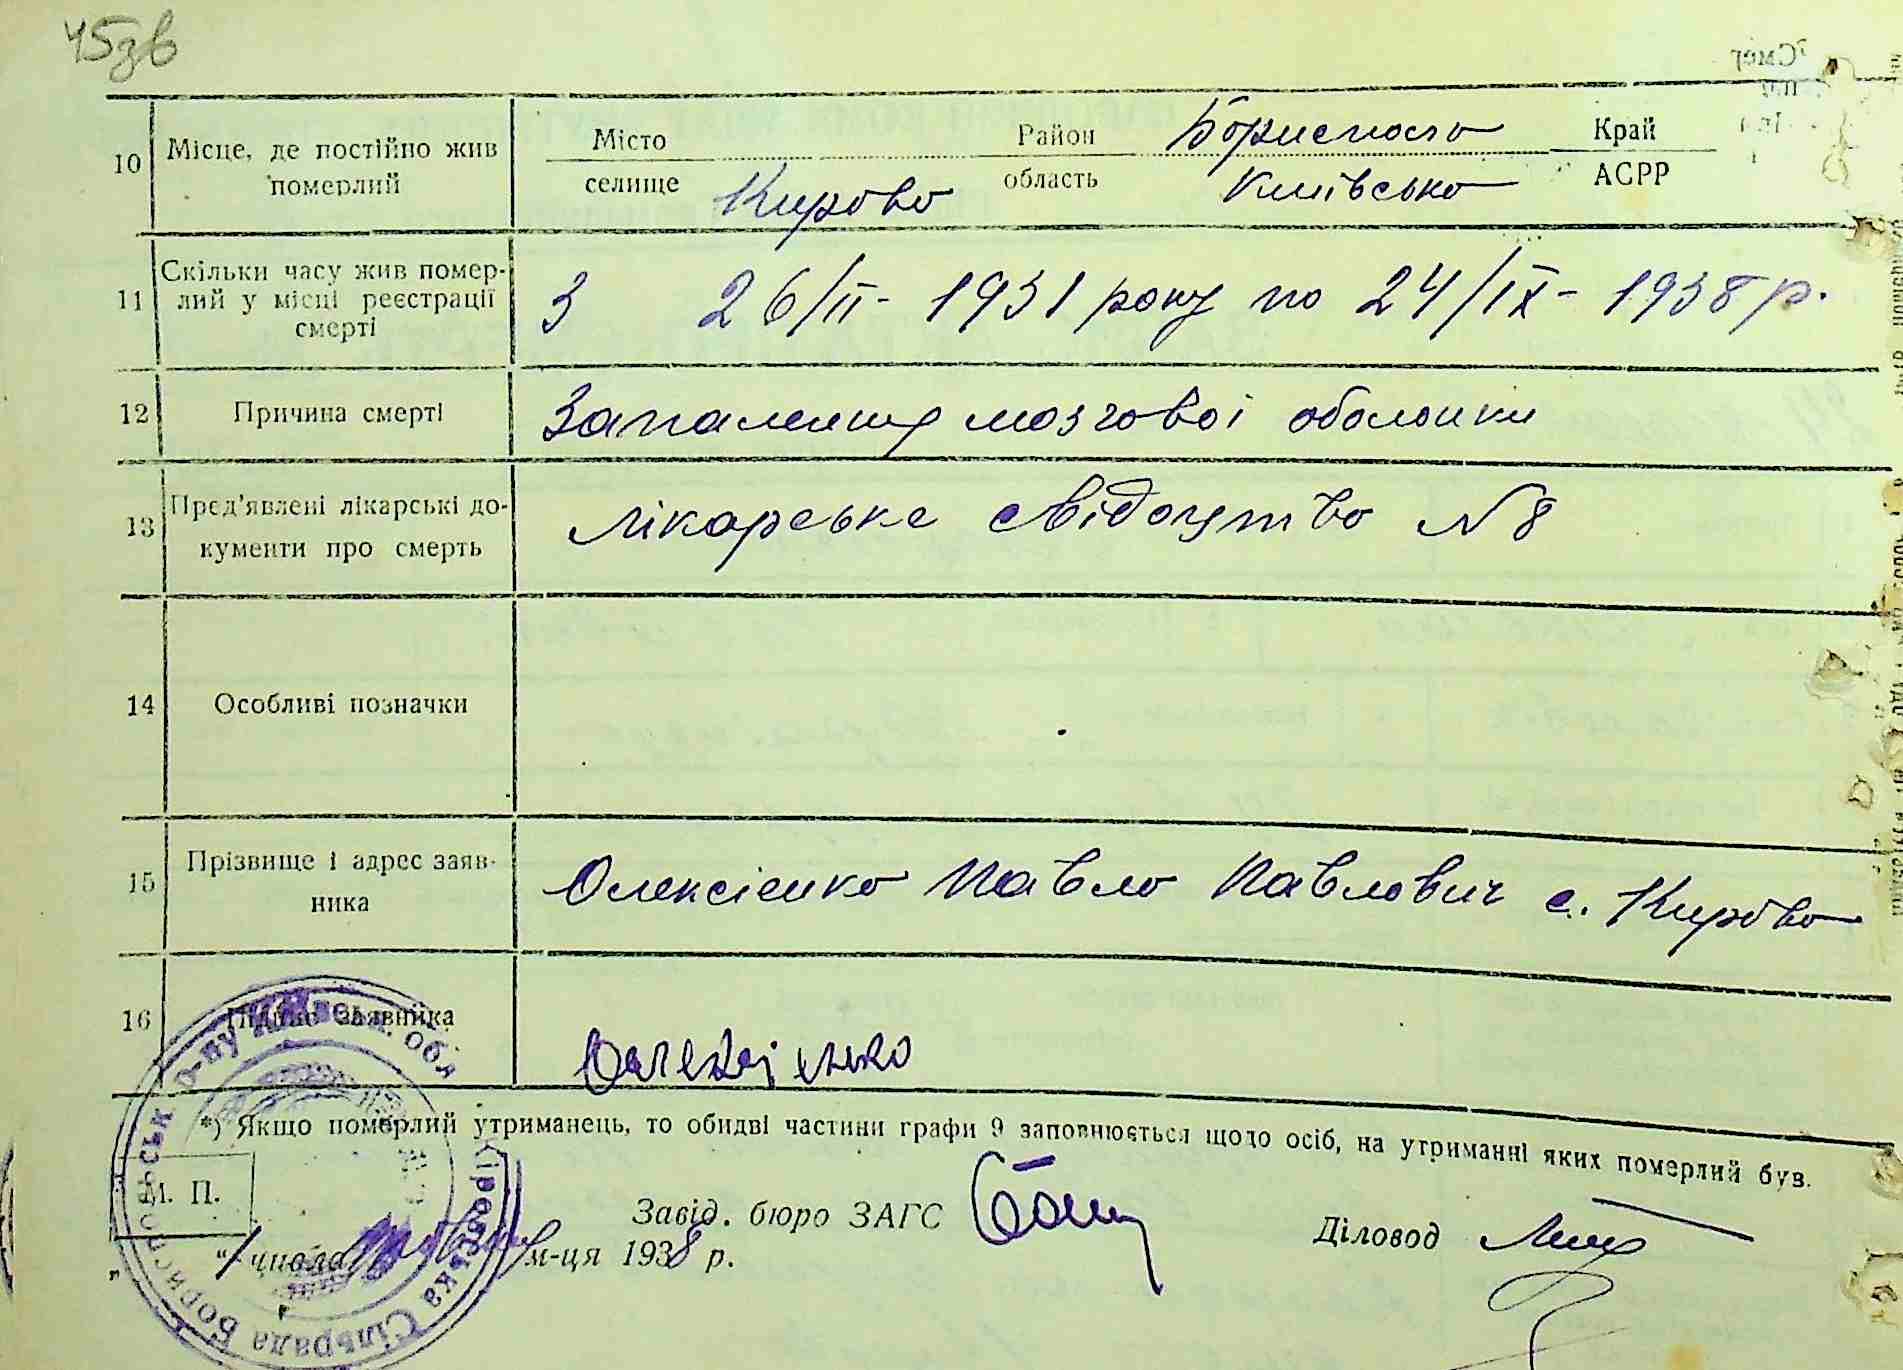 45зв
10 Місце, де постійно жив померлий
Місто Район Бориспол Край
селище Кирово область Київсько АСРР
11 Скільки часу жив помер-
лий у місці реєстрації
смерті
З 26/II - 1931 року по 24/IX - 1938 р.
12 Причина смерті Запалення мозгової оболонки
13 Пред'явлені лікарські до-
кументи про смерть
лікарське свідоцтво №8
14 Особливі позначки
15 Прізвище і адрес заяв-
ника
Олексієнко Павло Павлович с. Кирово
16 Підпис заявника Олексієнко
*) Якщо померлий утриманець, то обидві частини графи 9 заповнюється щодо осіб, на утриманні яких померлий був.
М. П.
Завід. бюро ЗАГС
Діловод
"1" числа м-ця 1938 р.
Кіровська Сільрада Бориспольськ. р-ну Київськ. обл